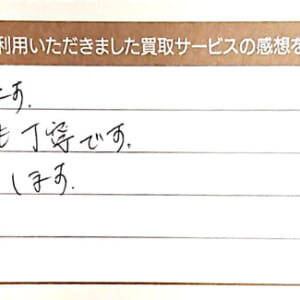 利用いただきました買取サービスの感想を
です.
も丁寧です.
します.